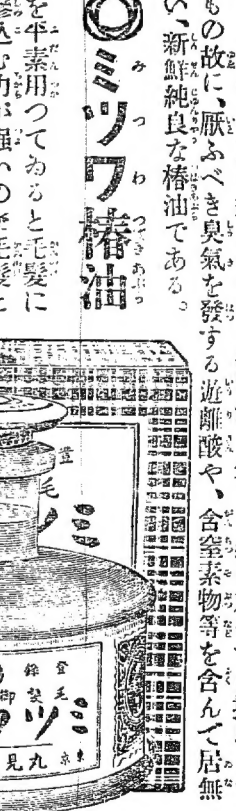 もの故に、厭ふべき臭氣を發する遊離酸や、含窒素物等を含んで居無
い、新鮮純良な椿油である。
◎ミツワ椿油
を平素用つてゐると毛髮に
込む力が强いので毛髮と
登
毛
ミツ
登錄
毛製
ミツワ
東京
丸見